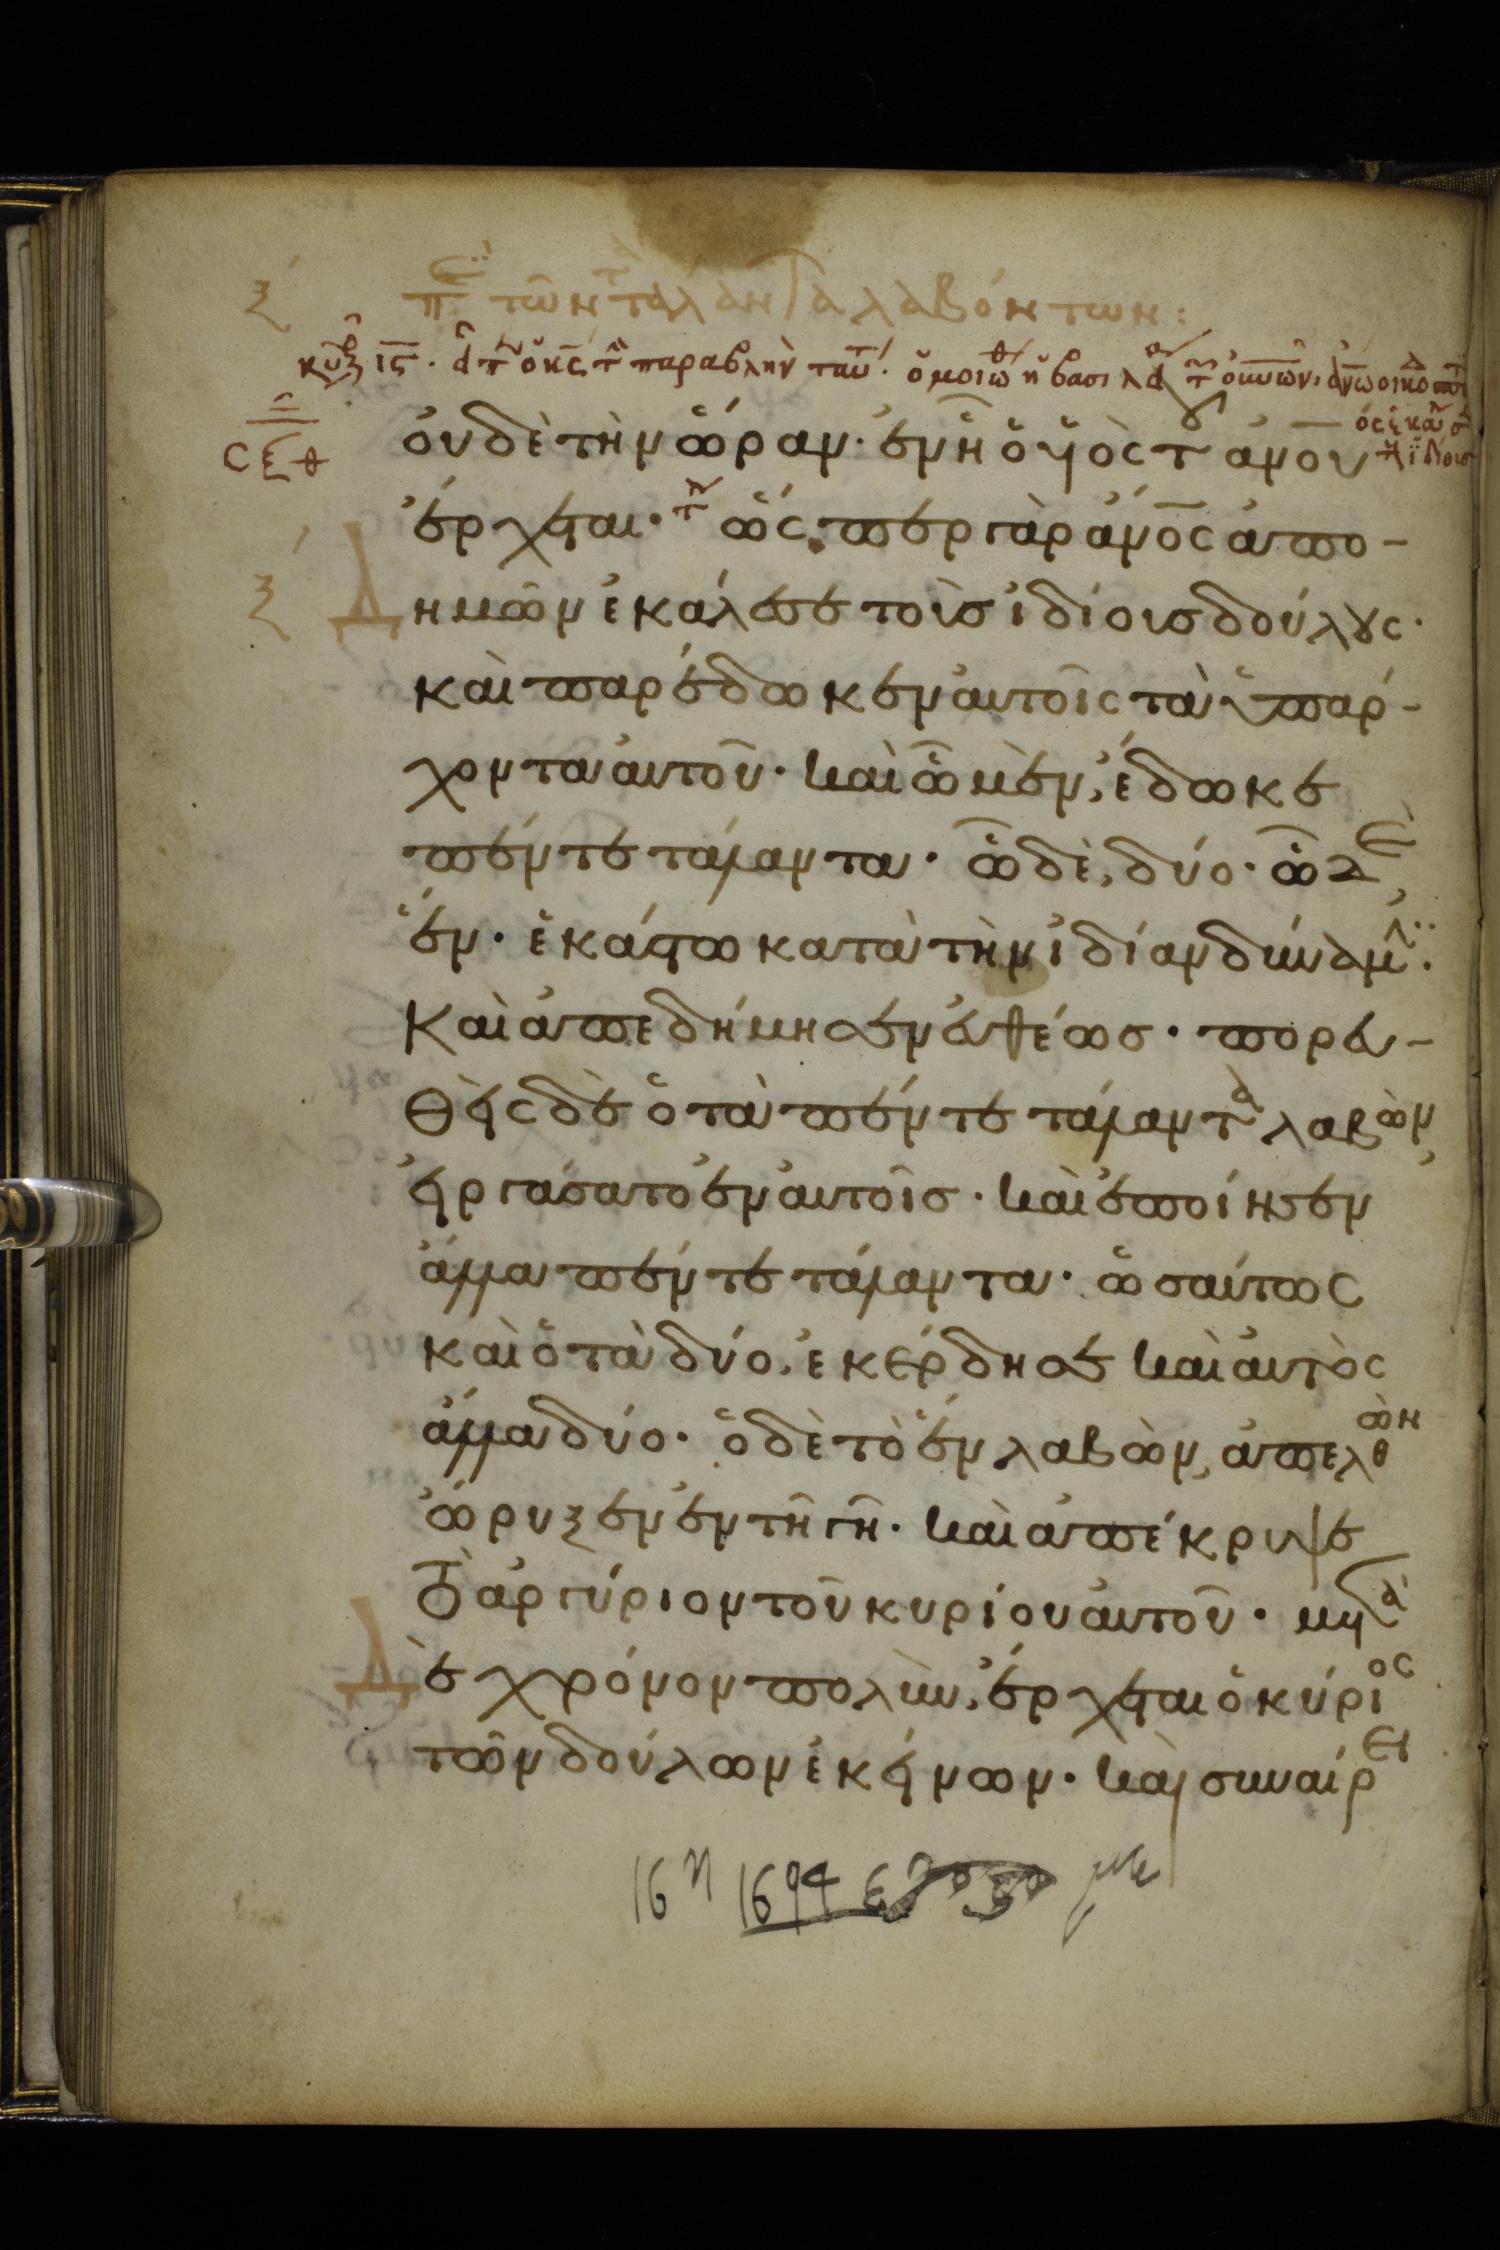 ξ΄ π τῶν ταλάντα λαβόντων:
κυ ις. παραβλην ταυ. ὁμοιω η βασι
οὐδὲ τὴν ὥραν· ἐν ἧ ὁ υἱὸς τ ἀνου
ἔρχεται· ὥσπερ γὰρ ἀνος ἀπο-
ξ΄ Δημῶν ἐκάλεσε τοὺσ ἰδίουσ δούλους·
καὶ παρέδωκεν αὐτοῖς τὰ ὑπάρ-
χοντα αὐτοῦ· καὶ ὧ μὲν, ἔδωκε
πέντε τάλαντα· ὧ δὲ, δύο· ὧ δὲ,
ἕν· ἑκάστω κατὰ τὴν ἰδίαν δύναμιν:
Καὶ ἀπεδήμησεν εὐθέωσ· πορευ-
θεὶς δὲ ὁ τὰ πέντε τάλαντα λαβὼν,
εἰργάσατο ἐν αὐτοῖσ· καὶ ἐποίησεν
ἄλλα πέντε τάλαντα· ὡσαύτως
καὶ ὁ τὰ δύο, ἐκέρδησε καὶ αὐτὸς
ἄλλα δύο· ὁ δὲ τὸ ἓν λαβὼν, ἀπελθὼν
ὤρυξεν ἐν τῆ γῆ· καὶ ἀπέκρυψε
τὸ ἀργύριον τοῦ κυρίου αὐτοῦ· μετὰ
Δὲ χρόνον πολὺν, ἔρχεται ὁ κύριος
τῶν δούλων ἐκείνων· καὶ συναίρει